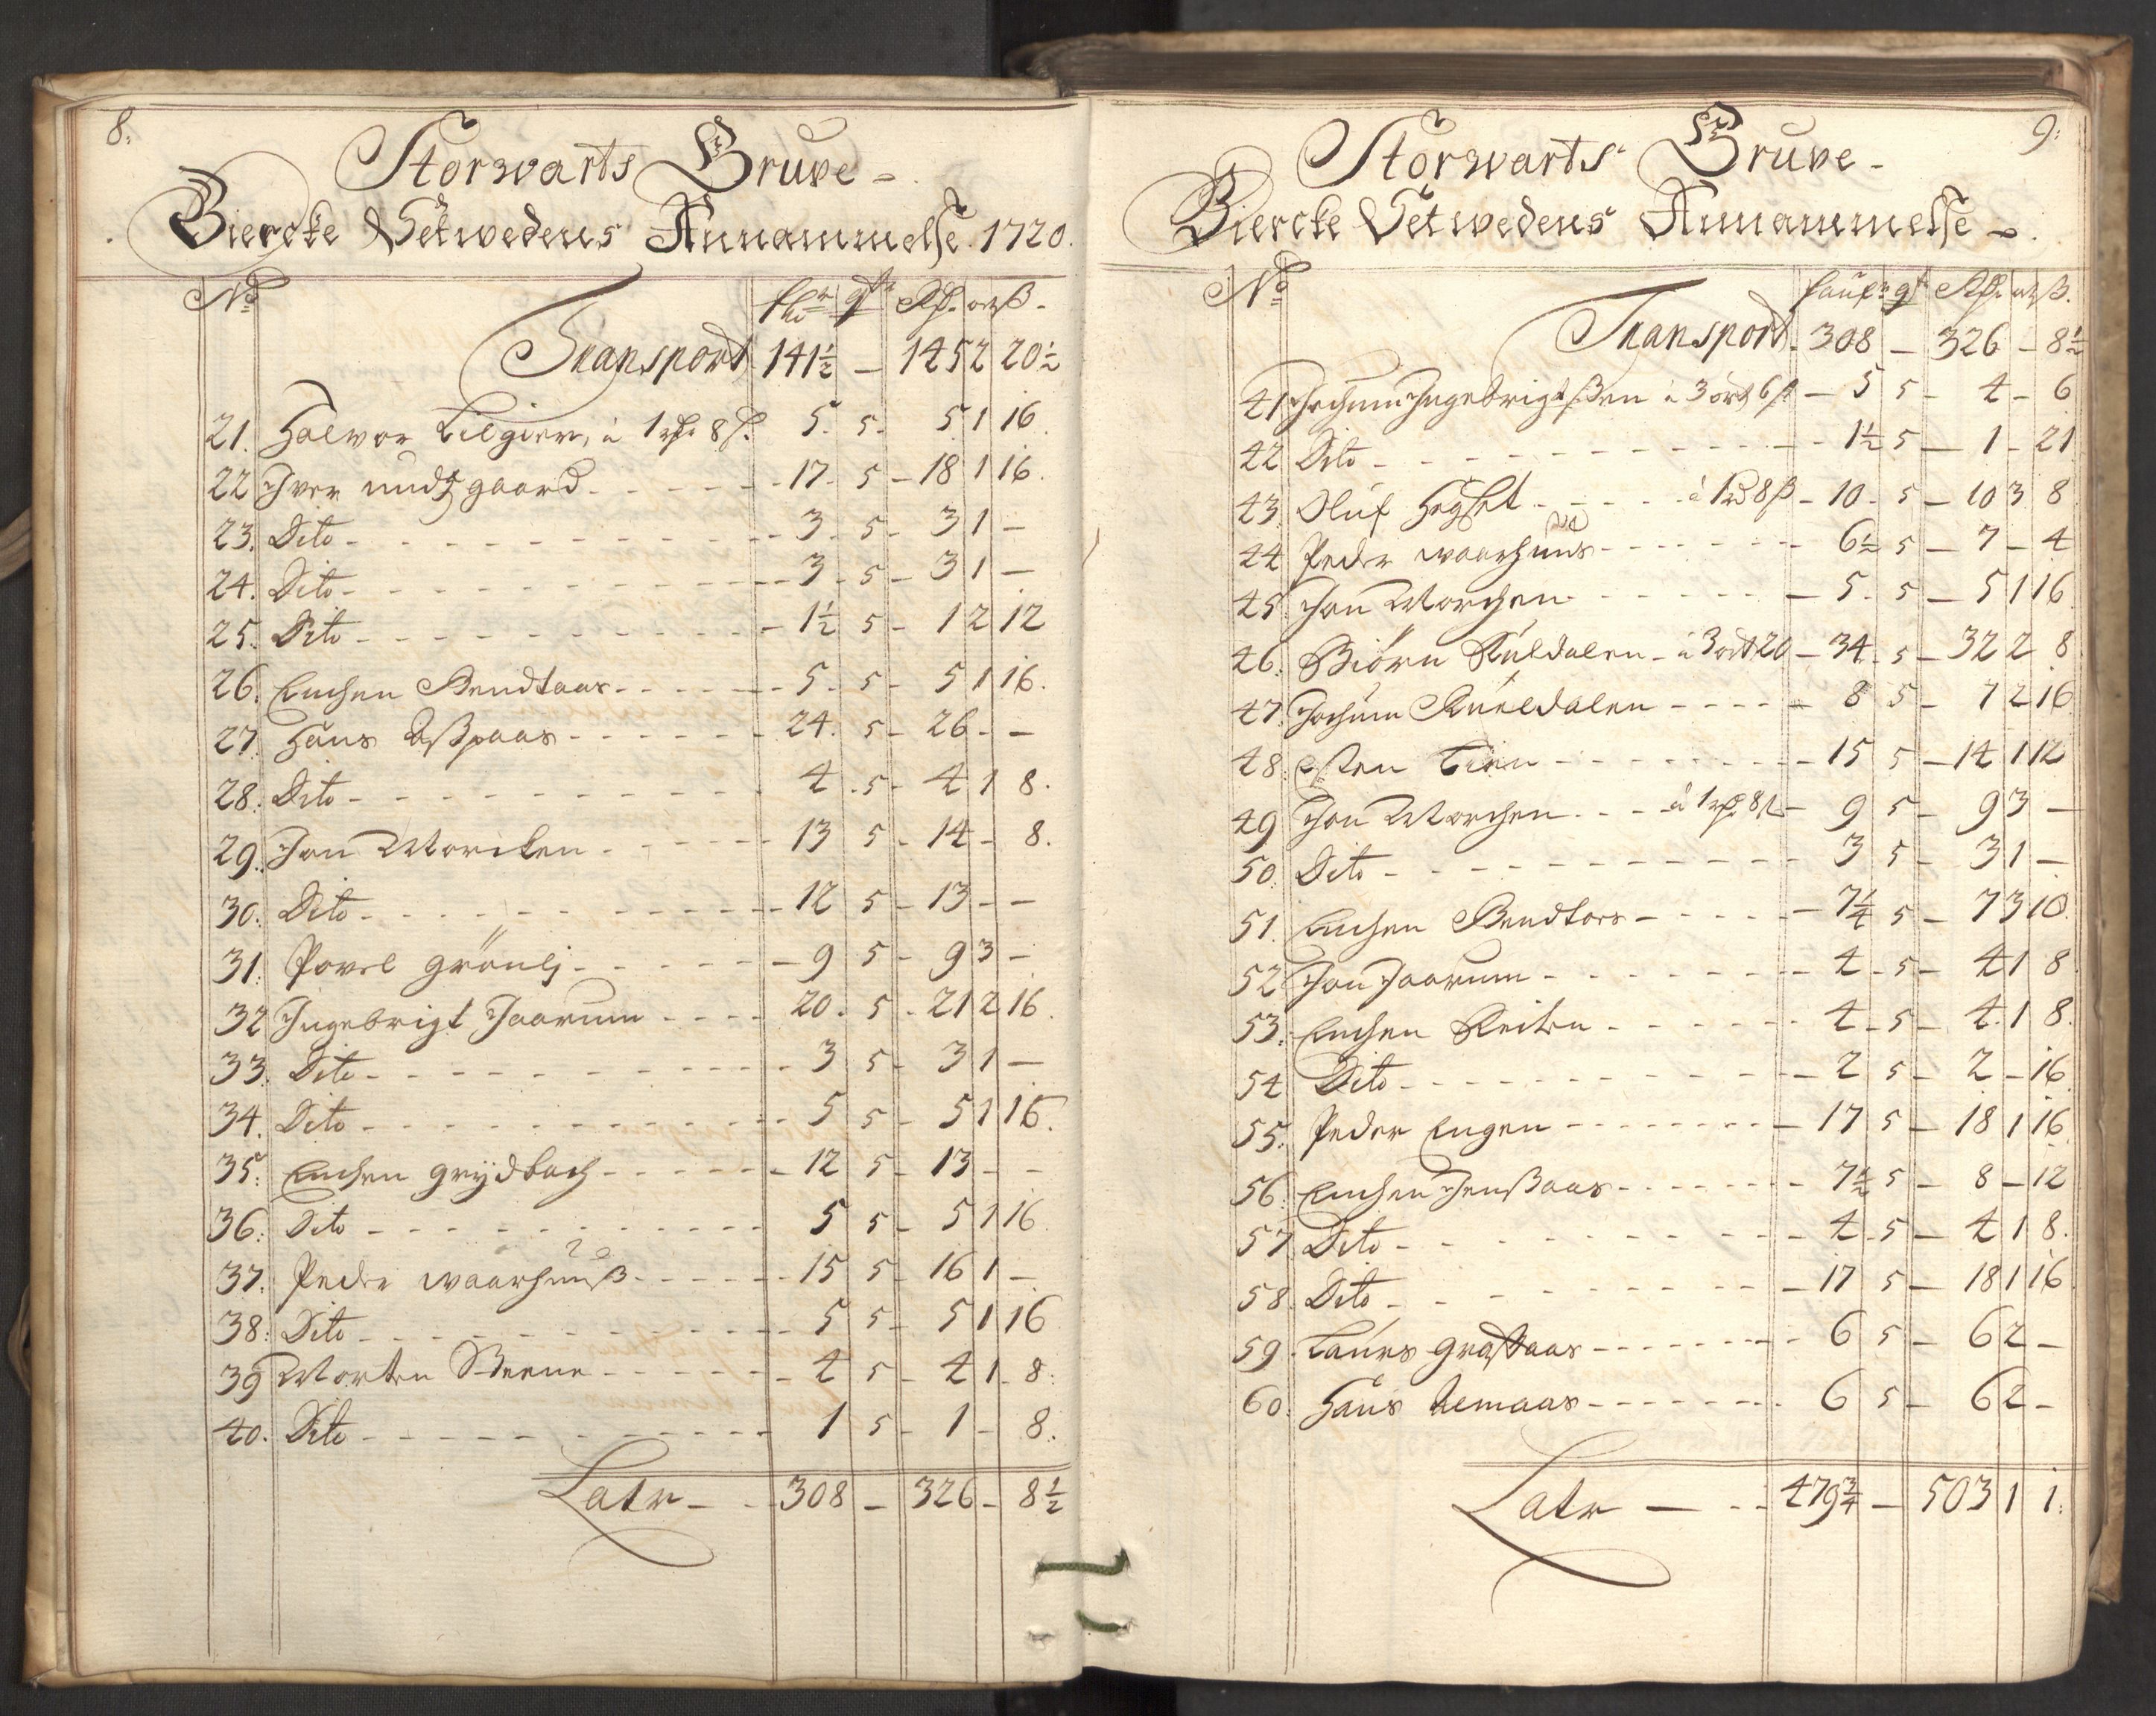 8.
Storwarts Gruve
Biercke Setwedens Annammelse 1720.
No
Transport 141½ — 145 2 20½
21. Halvor Lilgien, à 1 rdr 8 ß. 5. 5. 5 1 16.
22 Iver 17. 5 — 18 1 16.
23. Dito 3. 5 — 3 1 —
24. Dito 3. 5 — 3 1 —
25. Dito 1½ 5 — 1 2 12
26. Enchen Bendtaas 5. 5 — 5 1 16.
27. Hans Aßpaas 24. 5 — 26 — —
28. Dito 4. 5 — 4 1 8.
29. Jon Morchen 13 5 — 14 — 8.
30. Dito 12 5 — 13 — —
31. Povel Grönlj 9 5 — 9 3 —
32 Ingebrigt Jaarum 20. 5 — 21 2 16.
33. Dito 3 5 — 3 1 —
34. Dito 5 5 — 5 1 16.
35. Enchen Grÿdbach 12 5 — 13 — —
36. Dito 5 5 — 5 1 16
37. Peder Waarhuuß 15 5 — 16 1 —
38. Dito 5 5 — 5 1 16
39 Morten Steene 4 5 — 4 1 8.
40. Dito 1 5 — 1 — 8.
Latr — 308 — 326 — 8½
9.
Storwarts Gruve
Biercke Setwedens Annammelse
No
Transport 308 — 326 — 8½
41 Jochum Ingebrigtßen à 3 ort 6 ß — 5 5 — 4 — 6
42 Dito 1½ 5 — 1 — 21
43. Oluf Høgset à 1 rd 8 ß — 10. 5 — 10 3 8
44 Peder Waarhuus 6½ 5 — 7 — 4
45. Jon Morchen 5. 5 — 5 1 16.
46. Biörn Rueldalen à 3 ort 20 — 34. 5 — 32 2 8
47. Jochum Rueldalen 8 5 — 7 2 16
48. Esten Lien 15 5 — 14 1 12
49 Jon Morchen à 1 rdr 8 ß — 9 5 — 9 3 —
50. Dito 3 5 — 3 1 —
51. Enchen Bendtors 7¼ 5 — 7 3 10.
52 Jon Jaarum 4 5 — 4 1 8
53. Enchen Reiten 4 5 — 4 1 8.
54 Dito 2 5 — 2 — 16
55. Peder Engen 17 5 — 18 1 16
56. Enchen Jenßaas 7½ 5 — 8 — 12
57 Dito 4 5 — 4 1 8.
58. Dito 17 5 — 18 1 16
59. Laurs Grøttaas 6 5 — 6 2 —
60. Hans Aemaas 6 5 — 6 2 —
Latr — 479¾ — 503 1 1.